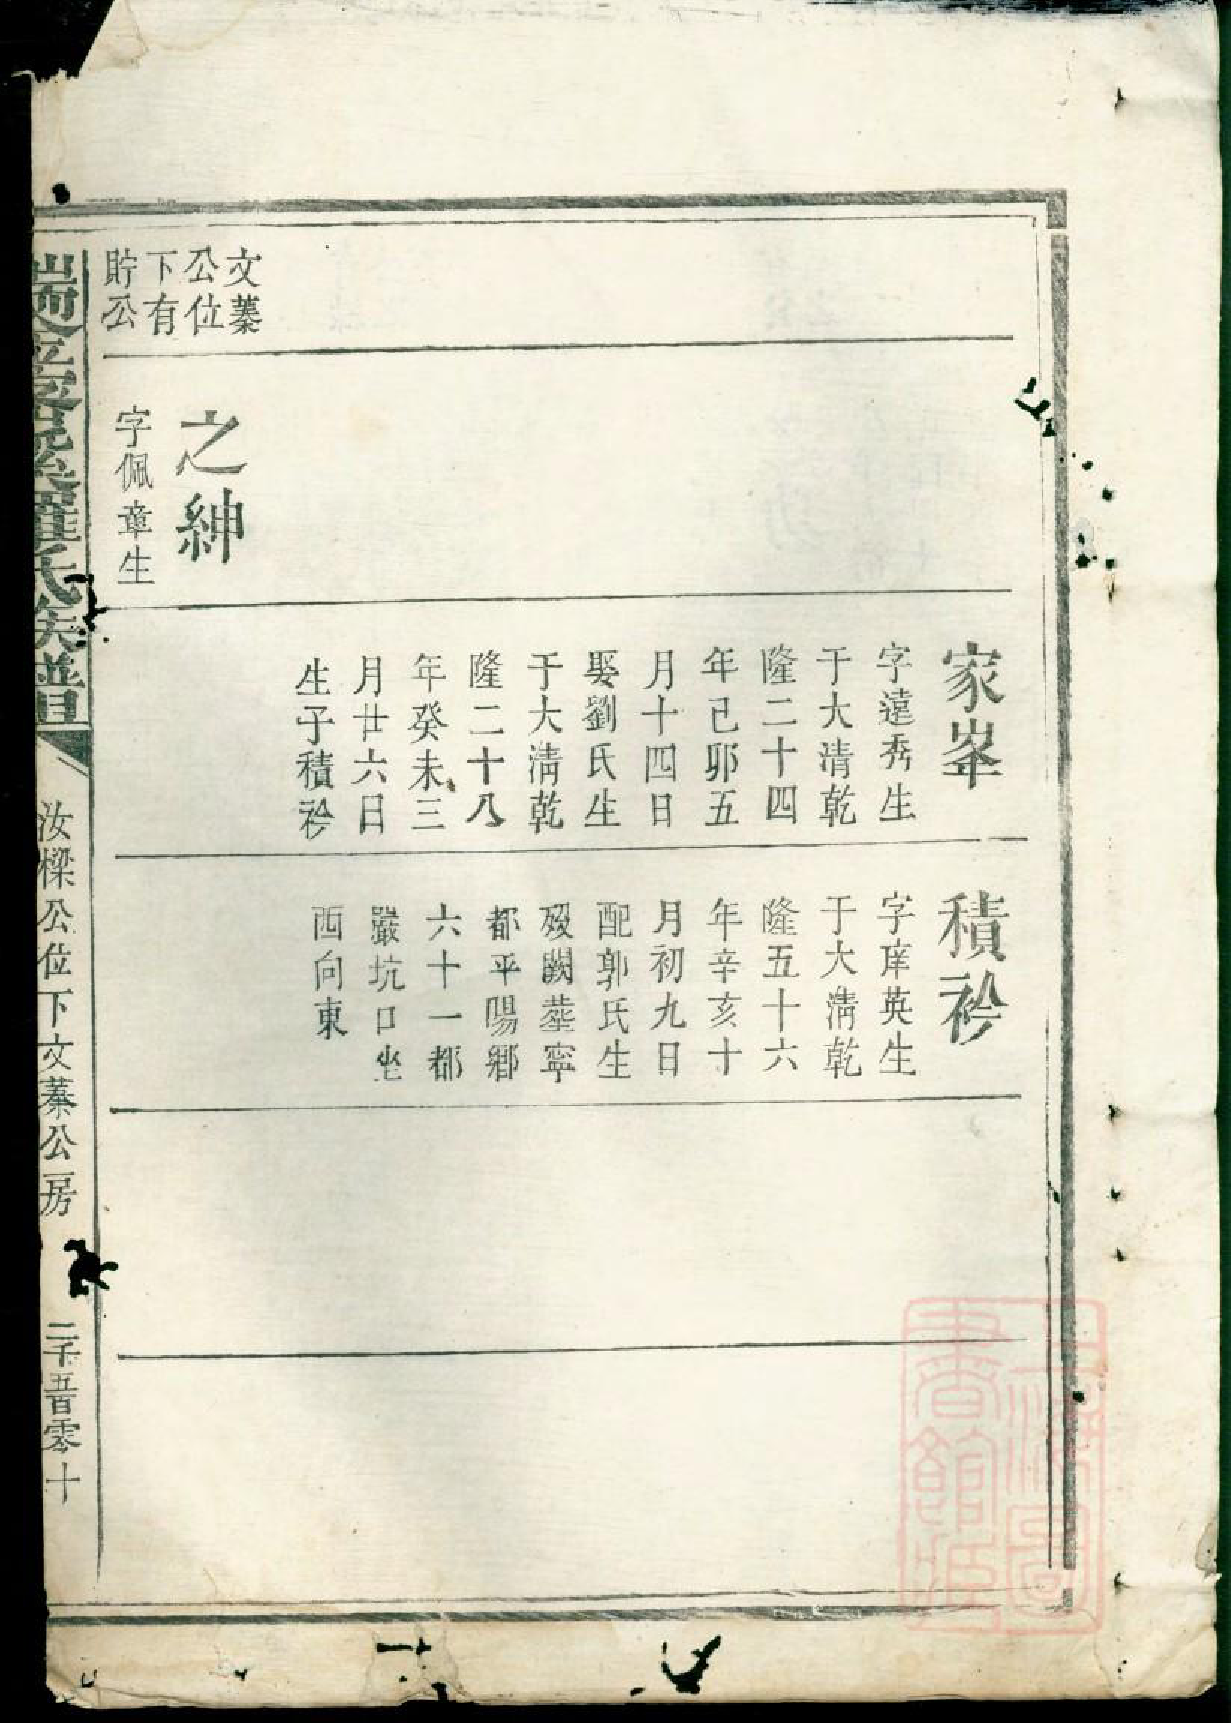 文蓁
公位
下有
貯公
之紳
字佩章生
家峯
字遠秀生
于大清乾
隆二十四
年己卯五
月十四日
娶劉氏生
于大清乾
隆二十八
年癸未三
月廿六日
生子積衿
積衿
字庠英生
于大清乾
隆五十六
年辛亥十
月初九日
配郭氏生
歿闕塟寧
都平陽鄉
六十一都
嚴坑口坐
西向東
羅氏族譜
汝樑公位下文蓁公房
二千五百零十
上海圖
書館藏